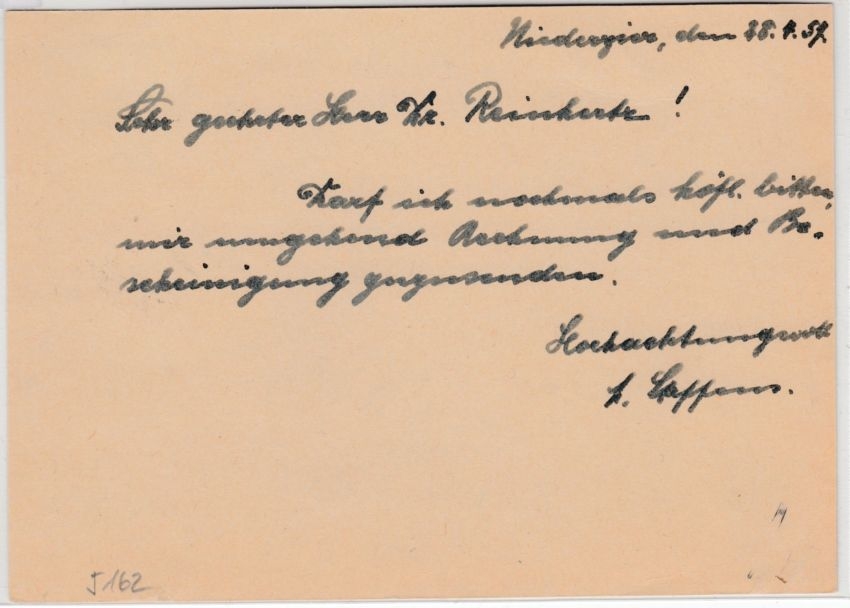 Niederzier, den 28.4.57.
Sehr geehrter Herr Dr. Reinhertz !
Darf ich nochmals höfl. bitten,
mir umgehend Rechnung und Be-
scheinigung zuzusenden.
Hochachtungsvoll
J 162